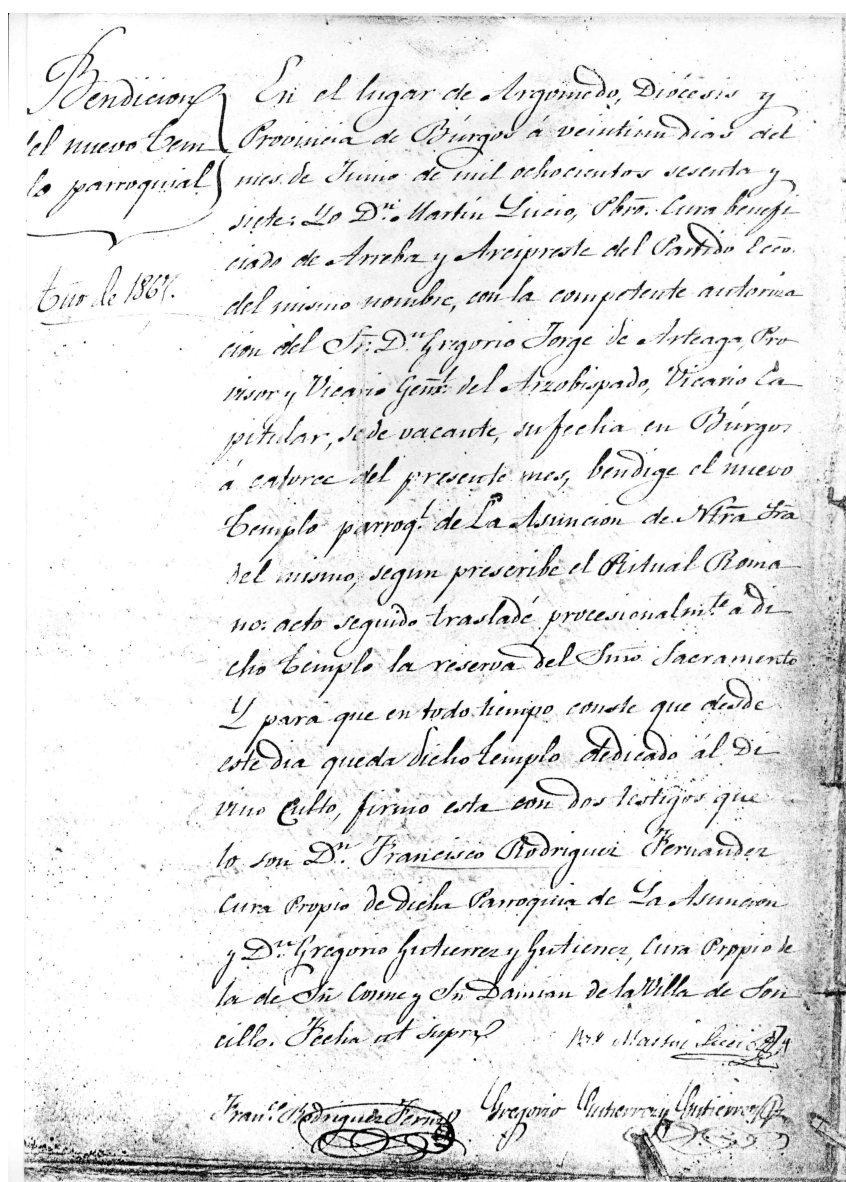 Bendicion
del nuevo tem
plo parroquial
Año de 1867.
En el lugar de Argomedo, Diócesis y
Provincia de Búrgos á veintiun dias del
mes de Junio de mil ochocientos sesenta y
siete: Yo Dn. Martin Lucio, Pbro. Cura benefi
ciado de Arreba y Arcipreste del Partido Ecco.
del mismo nombre, con la competente autoriza
cion del Sr. Dn. Gregorio Jorge de Arteaga, Pro
visor y Vicario Genl. del Arzobispado, Vicario Ca
pitular, sede vacante, su fecha en Búrgos
á catorce del presente mes, bendige el nuevo
templo parroql. de La Asuncion de Ntra Sra
del mismo, segun prescribe el Ritual Roma
no: acto seguido trasladé procesionalmte. á di
cho templo la reserva del Smo Sacramento
Y para que en todo tiempo conste que desde
este dia queda dicho templo dedicado ál Di
vino Culto, firmo esta con dos testigos que
lo son Dn. Francisco Rodriguez Fernandez
Cura Propio de dicha Parroquia de La Asuncion
y Dn. Gregorio Gutierrez y Gutierrez, Cura Propio de
la de Sn Cosme y Sn Damian de la Villa de Son
cillo. Fecha ut supra
Martin Lucio
Franco. Rodriguez Fernz
Gregorio Gutierrez y Gutierrez